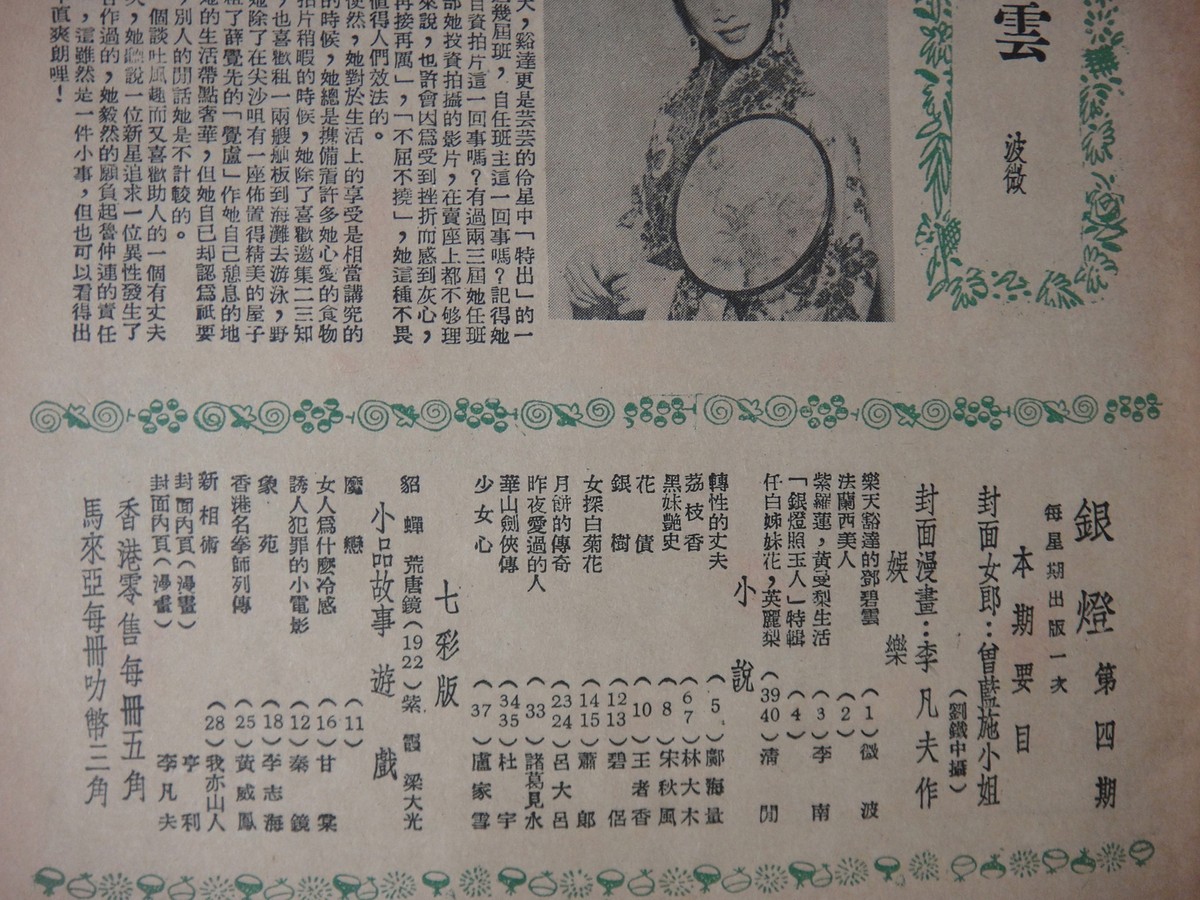 雲
波微
天，豁達更是芸芸的伶星中「特出」的一
幾屆班，自任班主這一回事嗎？記得她
自資拍片這一回事嗎？有過兩三屆她任班
部她投資拍攝的影片，在賣座上都不够理
來說，也許會因爲受到挫折而感到灰心，
再接再厲」，「不屈不撓」，她這種不畏
值得人們效法的。
使然，她對於生活上的享受是相當講究的
的時候，她總是携備着許多她心愛的食物
拍片稍暇的時候，她除了喜歡邀集二三知
，也喜歡租一兩艘舢板到海灘去游泳，野
她除了在尖沙咀有一座佈置得精美的屋子
租了薛覺先的「覺廬」作她自己憩息的地
她的生活帶點奢華，但她自己却認爲祇要
，別人的閒話她是不計較的。
個談吐風趣而又喜歡助人的一個有丈夫
，她聽說一位新星追求一位異性發生了
合作過的，她毅然的願負起魯仲連的責任
，這雖然是一件小事，但也可以看得出
直爽朗哩！
銀燈 第四期
每星期出版一次
本期要目
封面女郎：曾藍施小姐
（劉鐵中攝）
封面漫畫：李凡夫作
娛樂
樂天豁達的鄧碧雲（1）微波
法蘭西美人（2）
紫羅蓮，黃曼梨生活（3）李南
「銀燈照玉人」特輯（4）
任白姊妹花，英麗梨（39 40）清閒
小說
轉性的丈夫（5）鄺海量
荔枝香（6 7）林大木
黑妹艷史（8）宋秋風
花債（10）王者香
銀樹（12 13）碧侶
女探白菊花（14 15）蕭郎
月餅的傳奇（23 24）呂大呂
昨夜愛過的人（33）諸葛見水
華山劍俠傳（34 35）杜宇
少女心（37）盧家雪
七彩版
貂蟬 荒唐鏡（19 22）紫霞 梁大光
小品故事遊戲
魔戀（11）
女人爲什麽冷感（16）甘棠
誘人犯罪的小電影（12）秦鏡
象苑（18）李志海
香港名拳師列傳（25）黃威鳳
新相術（28）我亦山人
封面內頁（漫畫）亨利
封面內頁（漫畫）李凡夫
香港零售每冊五角
馬來亞每冊叻幣三角